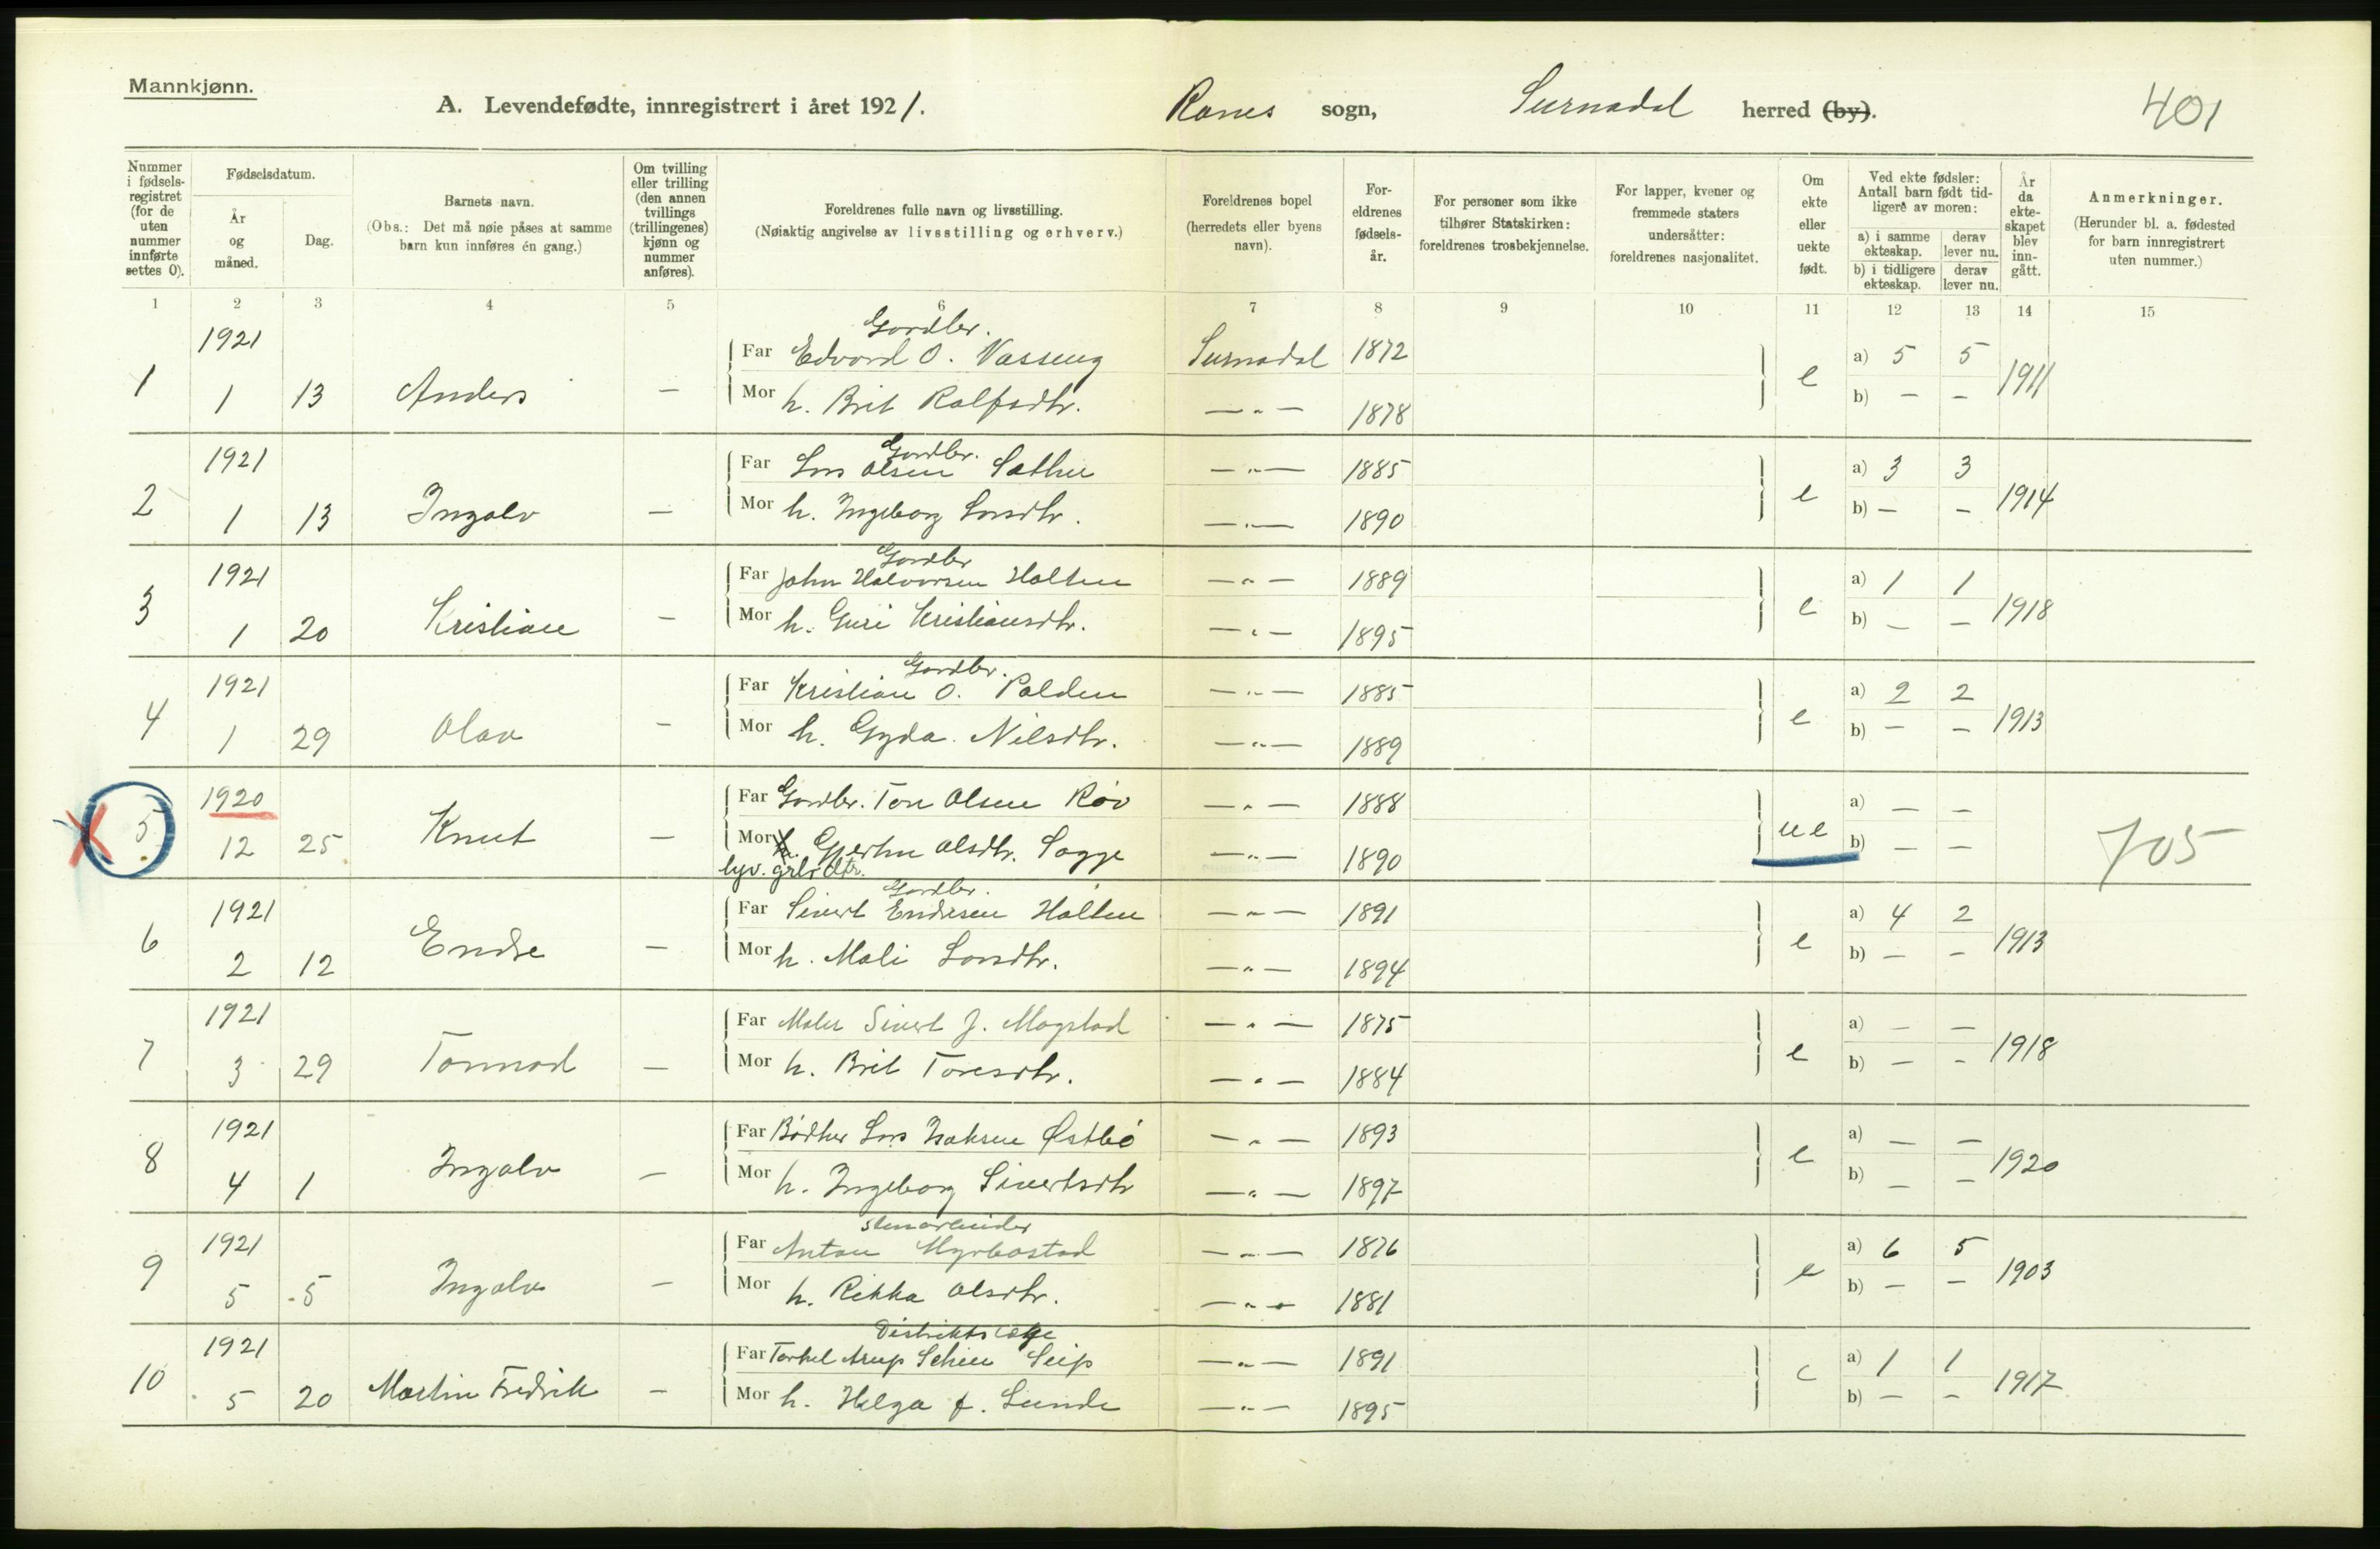 Mannkjønn.
A. Levendefødte, innregistrert i året 1921.
Ranes sogn,
Surnadal herred (by).
401
Nummer i fødsels- registret (for de uten nummer innførte settes 0).
Fødselsdatum.
År og måned.
Dag.
Barnets navn.
(Obs.: Det må nøie påses at samme barn kun innføres én gang.)
Om tvilling eller trilling (den annen tvillings (trillingenes) kjønn og nummer anføres).
Foreldrenes fulle navn og livsstilling.
(Nøiaktig angivelse av livsstilling og erhverv.)
Foreldrenes bopel (herredets eller byens navn).
For- eldrenes fødsels- år.
For personer som ikke tilhører Statskirken: foreldrenes trosbekjennelse.
For lapper, kvener og fremmede staters undersåtter: foreldrenes nasjonalitet.
Om ekte eller uekte født.
Ved ekte fødsler: Antall barn født tid- ligere av moren:
a) i samme ekteskap.
derav lever nu.
b) i tidligere ekteskap.
derav lever nu.
År da ekte- skapet blev inn- gått.
Anmerkninger.
(Herunder bl. a. fødested for barn innregistrert uten nummer.)
1 2 3 4 5 6 7 8 9 10 11 12 13 14 15
Gardbr.
1 1921 1 13 Anders — Far Edvard O. Vasseng Surnadal 1872 e a) 5 5 1911
Mor h. Brit Ralfsdtr. —"— 1878 b) — —
Gardbr.
2 1921 1 13 Ingolv — Far Lars Olsen Sæther —"— 1885 e a) 3 3 1914
Mor h. Ingeborg Larsdtr. —"— 1890 b) — —
Gardbr
3 1921 1 20 Kristian — Far John Halvorsen Halten —"— 1889 e a) 1 1 1918
Mor h. Guri Kristiansdtr. —"— 1895 b) — —
Gardbr.
4 1921 1 29 Olav — Far Kristian O. Polden —"— 1885 e a) 2 2 1913
Mor h. Gyda Nilsdtr. —"— 1889 b) — —
5 1920 12 25 Knut — Far Gardbr. Tore Olsen Røv —"— 1888 ue a) — — 705
Mor Gjertru Olsdtr. Sogge —"— 1890 b) — —
Gardbr.
6 1921 2 12 Endre — Far Sivert Endresen Halten —"— 1891 e a) 4 2 1913
Mor h. Mali Larsdtr. —"— 1894 b) — —
7 1921 3 29 Tormod — Far Maler Sivert J. Mogstad —"— 1875 e a) — — 1918
Mor h. Brit Toresdtr. —"— 1884 b) — —
8 1921 4 1 Ingolv — Far Bødker Lars Isaksen Østbø —"— 1893 e a) — — 1920
Mor h. Ingeborg Sivertsdtr —"— 1897 b) — —
Stenarbeider
9 1921 5 5 Ingolv — Far Anton Myrbostad —"— 1876 e a) 6 5 1903
Mor h. Rikka Olsdtr. —"— 1881 b) — —
Distriktslæge
10 1921 5 20 Martin Fredrik — Far Torkel Arup Schiee Seip —"— 1891 e a) 1 1 1917
Mor h. Helga f. Lunde —"— 1895 b) — —